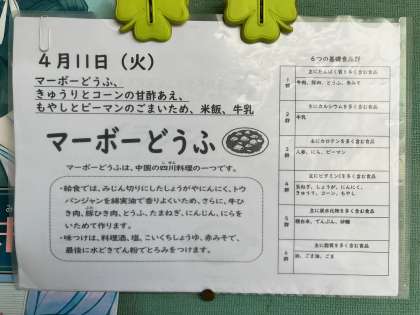 4月11日（火）
マーボーどうふ、
きゅうりとコーンの甘酢あえ、
もやしとピーマンのごまいため、米飯、牛乳
マーボーどうふ
マーボーどうふは、中国の四川料理の一つです。
・給食では、みじん切りにしたしょうがやにんにく、トウ
バンジャンを綿実油で香りよくいため、さらに、牛ひ
き肉、豚ひき肉、とうふ、たまねぎ、にんじん、にらを
いためて作ります。
・味つけは、料理酒、塩、こいくちしょうゆ、赤みそで、
最後に水どきでん粉でとろみをつけます。
6つの基礎食品群
1群
主にたんぱく質を多く含む食品
牛肉、豚肉、とうふ、赤みそ
2群
主にカルシウムを多く含む食品
牛乳
3群
主にカロテンを多く含む食品
人参、にら、ピーマン
4群
主にビタミンCを多く含む食品
玉ねぎ、しょうが、にんにく、
きゅうり、コーン、もやし
5群
主に炭水化物を多く含む食品
精白米、でんぷん、砂糖
6群
主に脂質を多く含む食品
油、ごま油、ごま